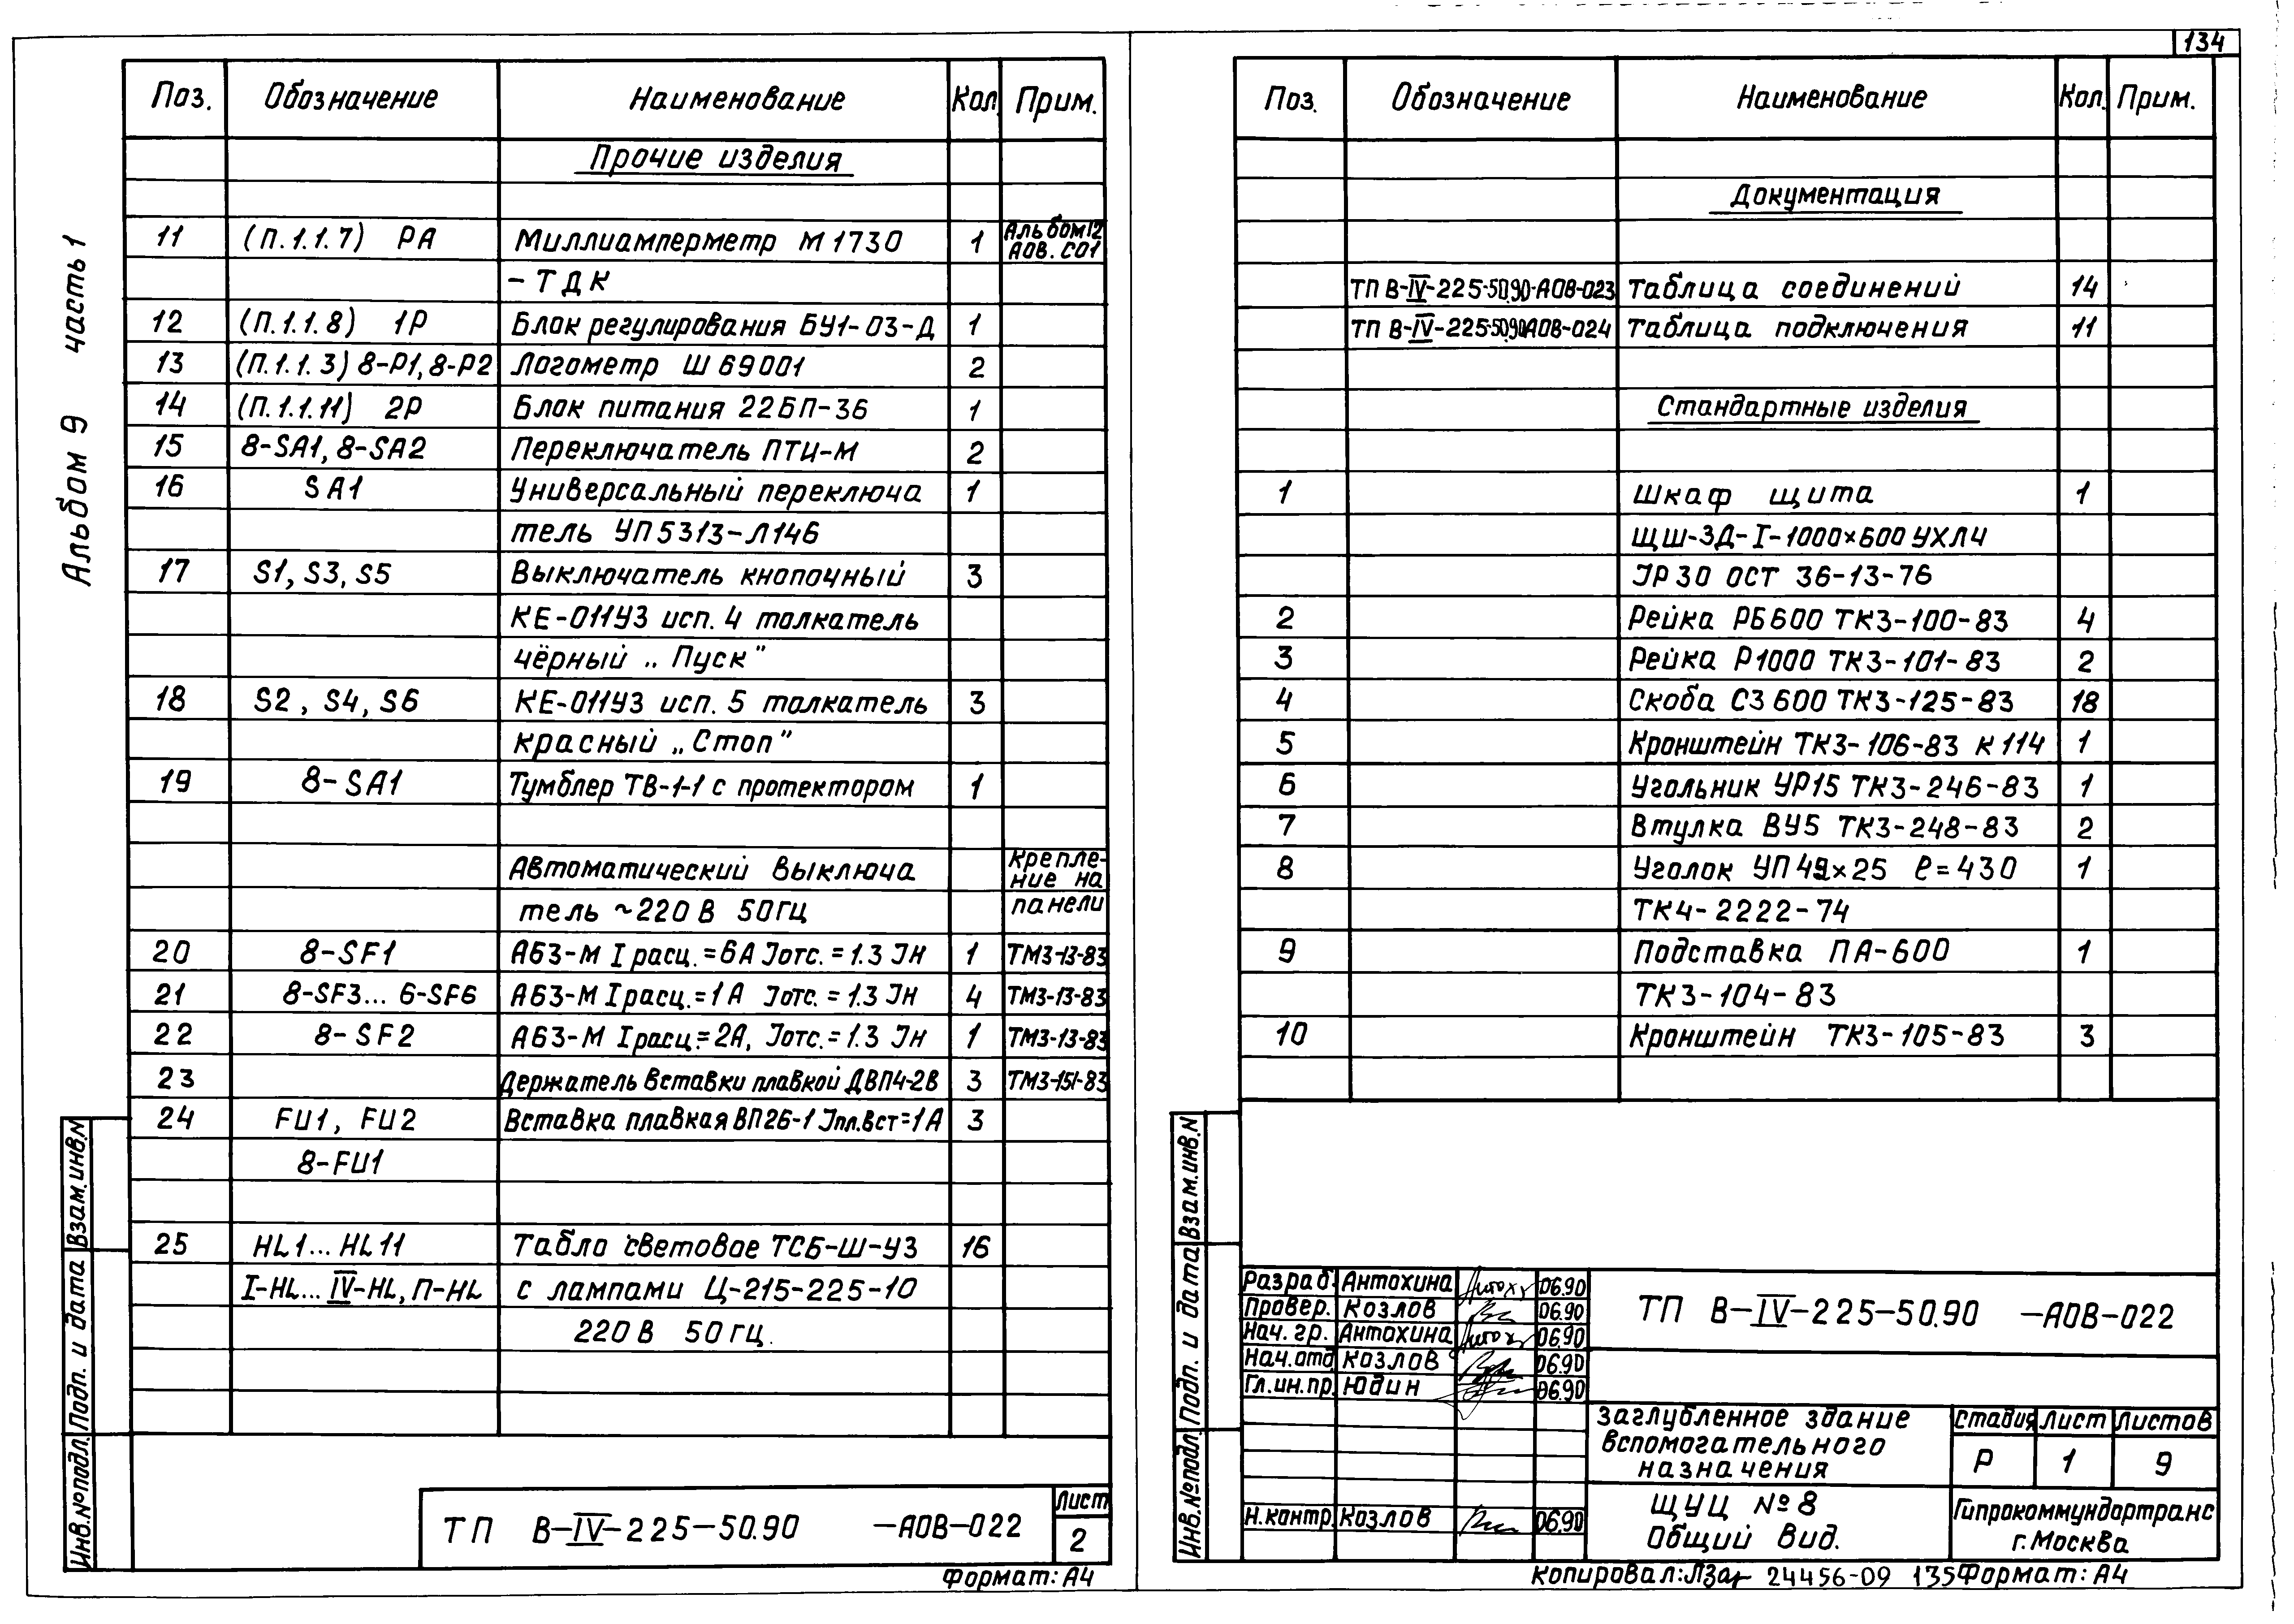 134
Альбом 9 часть 1
Поз. Обозначение Наименование Кол. Прим.
Прочие изделия
11 (П.1.1.7) РА Миллиамперметр М1730 1 Альбом12 АОВ.СО1
-ТДК
12 (П.1.1.8) 1Р Блок регулирования БУ1-03-Д 1
13 (П.1.1.3) 8-Р1, 8-Р2 Логометр Ш 69001 2
14 (П.1.1.11) 2Р Блок питания 22БП-36 1
15 8-SA1, 8-SA2 Переключатель ПТИ-М 2
16 SA1 Универсальный переключа 1
тель УП5313-Л146
17 S1, S3, S5 Выключатель кнопочный 3
КЕ-011У3 исп. 4 толкатель
чёрный „Пуск"
18 S2, S4, S6 КЕ-011У3 исп. 5 толкатель 3
красный „Стоп"
19 8-SA1 Тумблер ТВ-1-1 с протектором 1
Автоматический выключа Крепле-
ние на
тель ~220В 50Гц панели
20 8-SF1 А63-М I расц.=6А Jотс.=1.3 Jн 1 ТМ3-13-83
21 8-SF3... 6-SF6 А63-М I расц.=1А Jотс.=1.3 Jн 4 ТМ3-13-83
22 8-SF2 А63-М I расц.=2А, Jотс.=1.3 Jн 1 ТМ3-13-83
23 Держатель вставки плавкой ДВП4-2В 3 ТМ3-151-83
24 FU1, FU2 Вставка плавкая ВП26-1 Jпл.вст=1А 3
8-FU1
25 HL1...HL11 Табло световое ТСБ-Ш-У3 16
I-HL... IV-HL, П-HL с лампами Ц-215-225-10
220В 50гц.
Взам.инв.N
Подп. и дата
Инв.№подл.
ТП В-IV-225-50.90 -АОВ-022
Лист
2
Формат: А4
Поз. Обозначение Наименование Кол. Прим.
Документация
ТП В-IV-225-50.90-АОВ-023 Таблица соединений 14
ТП В-IV-225-50.90АОВ-024 Таблица подключения 11
Стандартные изделия
1 Шкаф щита 1
ЩШ-ЗД-I-1000×600 УХЛ4
JP30 ОСТ 36-13-76
2 Рейка РБ600 ТК3-100-83 4
3 Рейка Р1000 ТК3-101-83 2
4 Скоба С3 600 ТК3-125-83 18
5 Кронштейн ТК3-106-83 К114 1
6 Угольник УР15 ТК3-246-83 1
7 Втулка ВУ5 ТК3-248-83 2
8 Уголок УП ×25 ℓ=430 1
ТК4-2222-74
9 Подставка ПА-600 1
ТК3-104-83
10 Кронштейн ТК3-105-83 3
Взам.инв.N
Подп. и дата
Инв.№подл.
Разраб. Антохина 06.90
Провер. Козлов 06.90
Нач. гр. Антохина 06.90
Нач.отд Козлов 06.90
Гл.ин.пр. Юдин 06.90
Н.контр. Козлов 06.90
ТП В-IV-225-50.90 -АОВ-022
Заглубленное здание
вспомогательного
назначения
Стадия Лист Листов
Р 1 9
ЩУЦ №8
Общий вид.
Гипрокоммундортранс
г.Москва
Копировал: 24456-09 135 Формат: А4